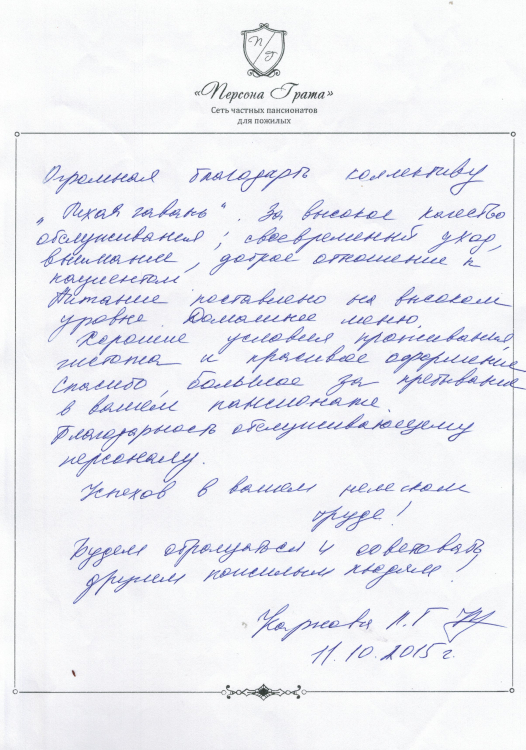 П Г
«Персона Грата»
Сеть частных пансионатов
для пожилых
Огромная благодарть коллективу
"Тихая гавань". За высокое качество
обслуживания; своевременный уход,
внимание, доброе отношение к
пациентом
Питание поставлено на высоком
уровне. Домашнее меню.
Хорошие условия проживания
чистота и красивое оформление
Спасибо, большое за пребывание
в вашем пансионате.
Благодарность обслуживающему
персоналу.
Успехов в вашем нелегком
труде!
Будем обращаться и советовать,
другим пожилым людям!
Карпова Л.Г
11.10.2015г.